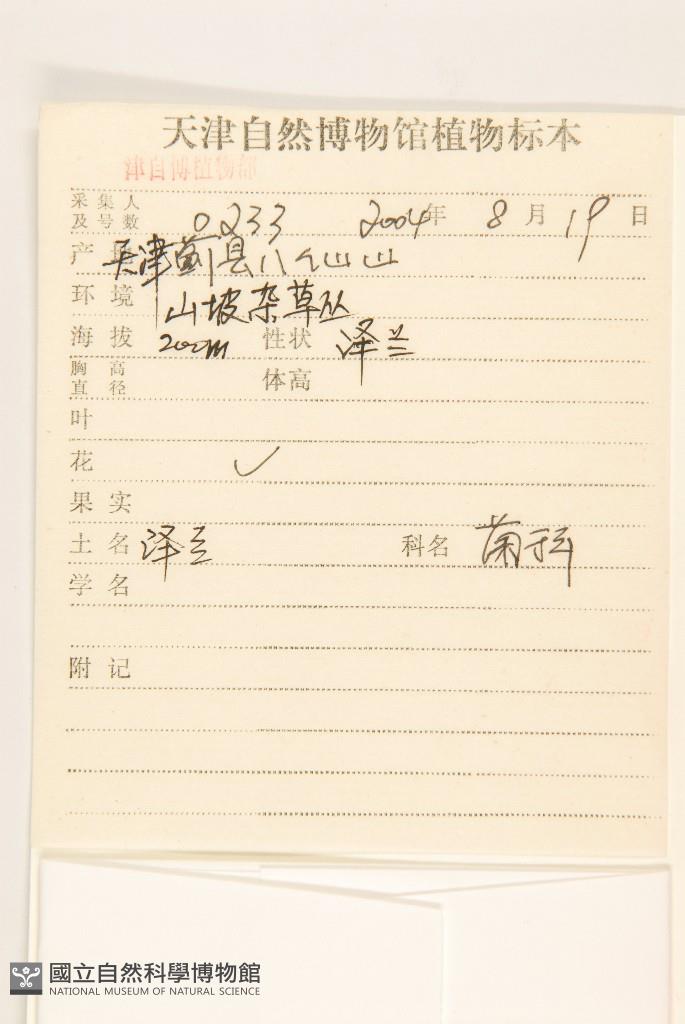 天津自然博物馆植物标本
津自博植物部
采集人及号数 0233 2004年 8月19日
产地 天津蓟县八仙山
环境 山坡杂草丛
海拔 200m 性状 泽兰
胸高直径 体高
叶
花 ✓
果实
土名 泽兰 科名 菊科
学名
附记
國立自然科學博物館
NATIONAL MUSEUM OF NATURAL SCIENCE